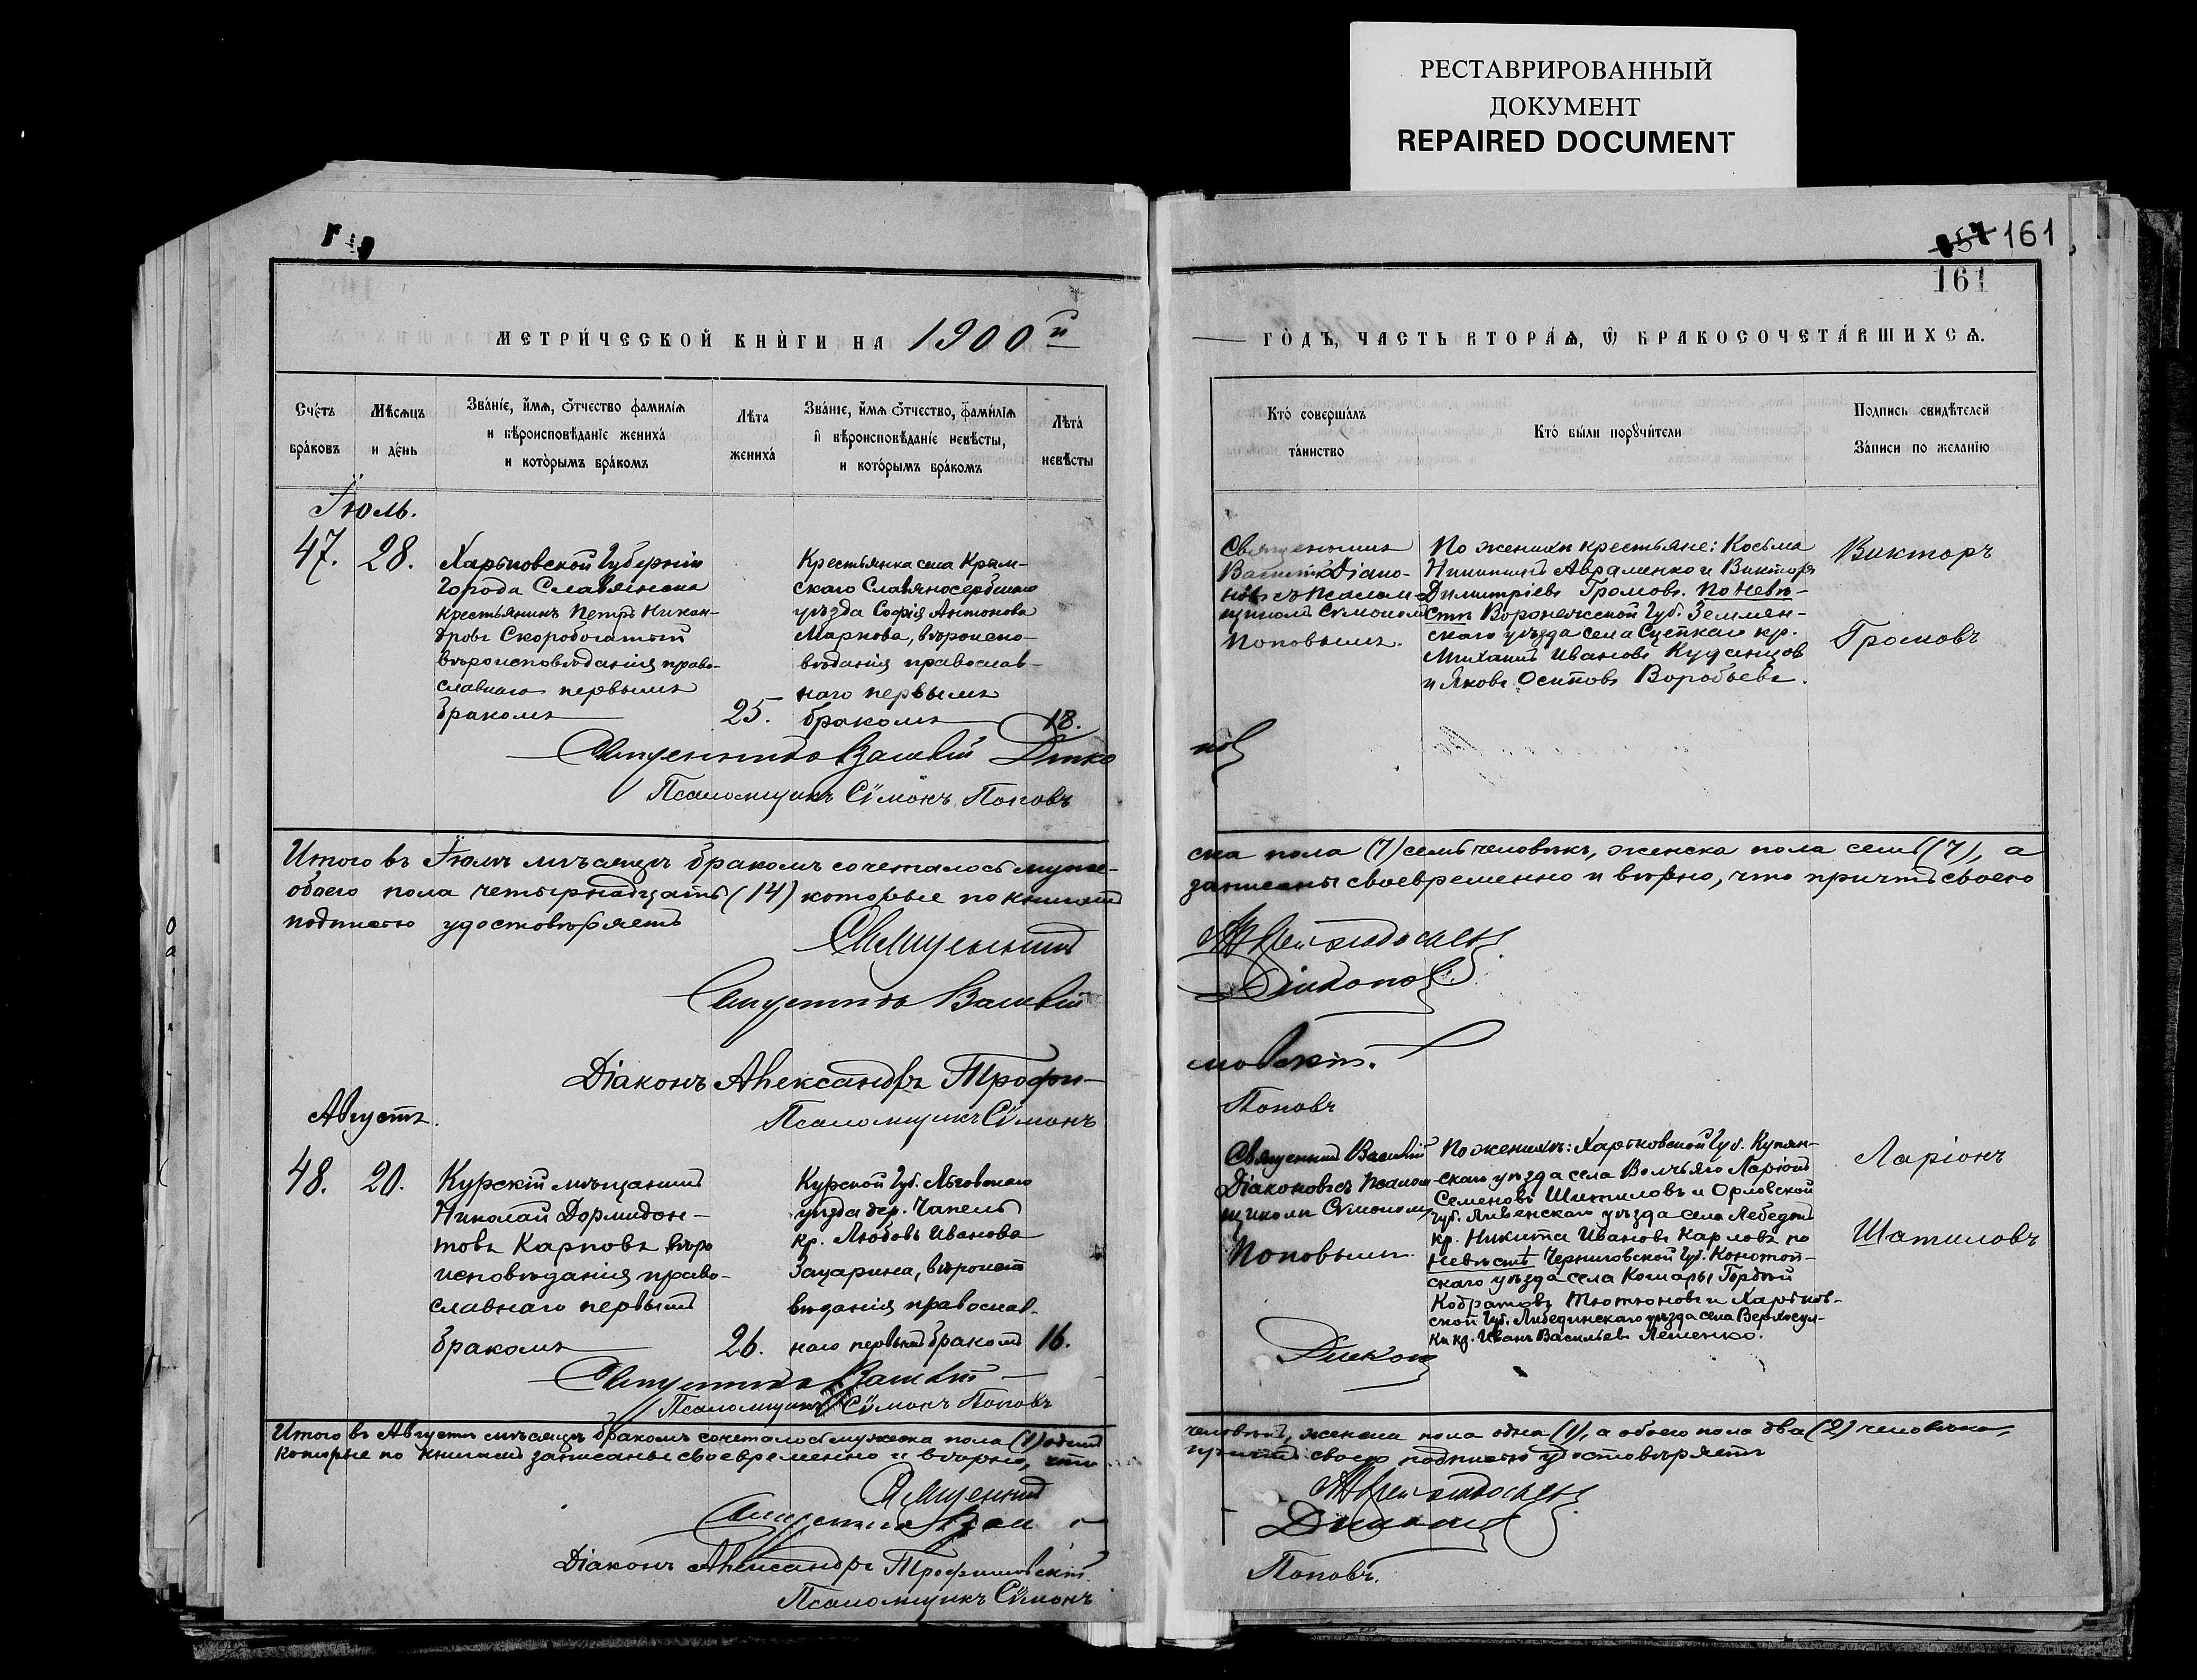 РЕСТАВРИРОВАННЫЙ
ДОКУМЕНТ
REPAIRED DOCUMENT
157 161
161
МЕТРИ́ЧЕСКОЙ КНИ́ГИ НА 1900й
ГО́ДЪ, ЧАСТЬ ВТОРА́Ѧ, Ѽ БРАКОСОЧЕТА́ВШИХСѦ.
Сче́тъ
бра́ковъ
Мѣ́сѧцъ
и де́нь
Зва́нїе, и́мѧ, о́тчество фами́лїѧ
и вѣроисповѣ́данїе жениха́
и кото́рымъ бра́комъ
Лѣ́та
жениха́
Зва́нїе, и́мѧ о́тчество, фами́лїѧ
и вѣроисповѣ́данїе невѣ́сты,
и кото́рымъ бра́комъ
Лѣ́та
невѣ́сты
Кто̀ соверша́лъ
та́инство
Кто̀ бы́ли порꙋчи́тели
Подпись свидѣтелей
Записи по желанїю
Іюль.
47.
28.
Харьковской Губерніи
города Славянска
крестьянинъ Петръ Никан-
дровъ Скоробогатый
вѣроисповѣданія право-
славнаго первымъ
бракомъ
25.
Крестьянка села Крым-
скаго Славяносербскаго
уѣзда Софія Антонова
Маркова, вѣроиспо-
вѣданія православ-
наго первымъ
бракомъ
18.
Священникъ
Василій Діако-
новъ съ псалом-
щикомъ Сѵмономъ
Поповымъ.
По женихѣ крестьяне: Косьма
Авраменко и Викторъ
Димитріевъ Громовъ. По невѣ-
стѣ Воронежской Губ. Землян-
скаго уѣзда села кр.
Михаилъ Ивановъ
и Яковъ Осиповъ Воробьевъ.
Викторъ
Громовъ
Священникъ Василій Діако
новъ
Псаломщикъ Сѵмонъ Поповъ
Итого въ Іюлѣ мѣсяцѣ бракомъ сочеталось муже-
ска пола (7) семь человѣкъ, женска пола семь (7), а
обоего пола четырнадцать (14) которые по книгамъ
записаны своевременно и вѣрно, что причтъ своего
подписью удостовѣряетъ
Священникъ
Священникъ Василій
Діаконовъ
Діаконъ Александръ Трофи-
мовскій.
Псаломщикъ Сѵмонъ
Поповъ
Августъ.
48.
20.
Курскій мѣщанинъ
Николай Дормидон-
товъ Карповъ, вѣро
исповѣданія право-
славнаго первымъ
бракомъ
26.
Курской Губ. Льговскаго
уѣзда дер. Чапель
кр. Любовь Иванова
Зацарина, вѣроиспо
вѣданія православ-
наго первымъ бракомъ
16.
Священникъ Василій
Діаконовъ съ псалом-
щикомъ Сѵмономъ
Поповымъ.
По женихѣ: Харьковской Губ. Купян-
скаго уѣзда села Волчьяго Ларіонъ
Семеновъ Шатиловъ и Орловской
Губ. Ливенскаго уѣзда села
кр. Никита Ивановъ Карловъ по
невѣстѣ Черниговской Губ. Конотоп-
скаго уѣзда села Кошары
Тютюновъ и Харьков-
ской Губ. Лебединскаго уѣзда села Верхосул-
ки кр. Иванъ Васильевъ Лещенко.
Ларіонъ
Шатиловъ
Священникъ Василій
Діаконовъ
Псаломщикъ Сѵмонъ Поповъ
Итого въ Августѣ мѣсяцѣ бракомъ сочеталось мужска пола (1) одинъ
человѣкъ, женска пола одна (1), а обоего пола два (2) человѣка,
которые по книгамъ записаны своевременно и вѣрно, что
причтъ своею подписью удостовѣряетъ
Священникъ
Діаконовъ
Діаконъ Александръ Трофимовскій.
Псаломщикъ Сѵмонъ
Поповъ.